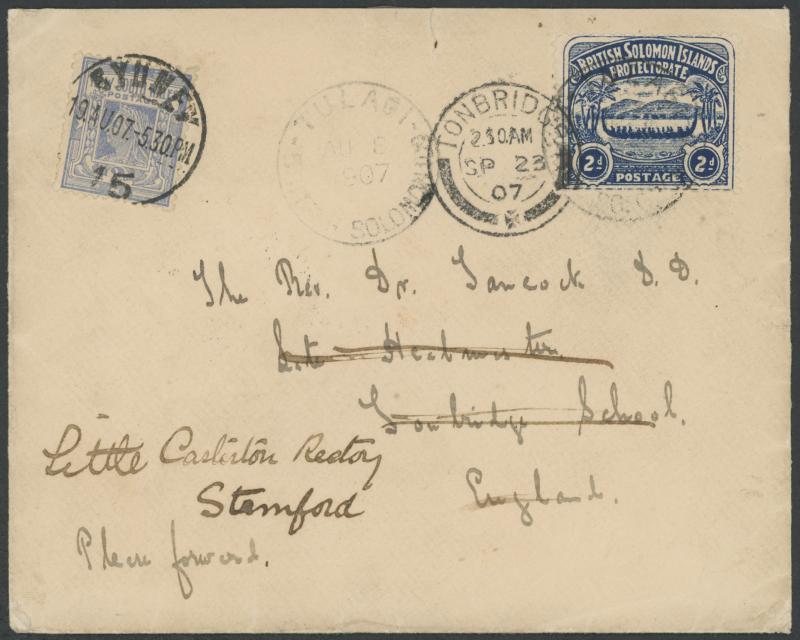 SYDNEY
19.AU.07-5.30.PM
15
POSTAGE
TULAGI
AU
1907
SOLOMON
TONBRIDGE
2.30AM
SP 23
07
BRITISH SOLOMON ISLANDS
PROTECTORATE
2d 2d
POSTAGE
The Rev. Dr. Tancock D.D.
Late Headmaster
Tonbridge School.
England.
Little Casterton Rectory
Stamford
Please forward.